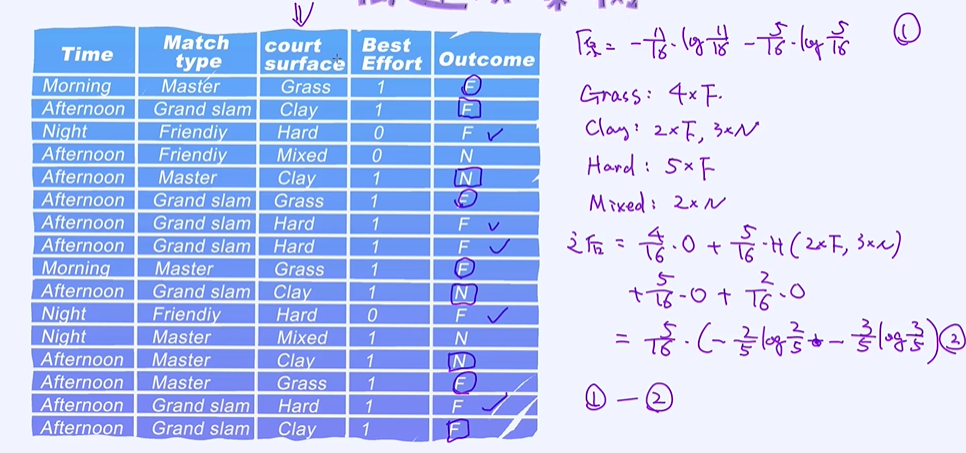 Time Match type court surface Best Effort Outcome
Morning Master Grass 1 F
Afternoon Grand slam Clay 1 F
Night Friendiy Hard 0 F ✓
Afternoon Friendiy Mixed 0 N
Afternoon Master Clay 1 N
Afternoon Grand slam Grass 1 F
Afternoon Grand slam Hard 1 F ✓
Afternoon Grand slam Hard 1 F ✓
Morning Master Grass 1 F
Afternoon Grand slam Clay 1 N
Night Friendiy Hard 0 F ✓
Night Master Mixed 1 N
Afternoon Master Clay 1 N
Afternoon Master Grass 1 F
Afternoon Grand slam Hard 1 F ✓
Afternoon Grand slam Clay 1 F
= -11/16·log 11/16 - 5/16·log 5/16 ①
Grass: 4×F.
Clay: 2×F, 3×N
Hard: 5×F
Mixed: 2×N
= 4/16·0 + 5/16·H(2×F, 3×N)
+ 5/16·0 + 2/16·0
= 5/16·(-2/5 log 2/5 - 3/5 log 3/5) ②
① - ②